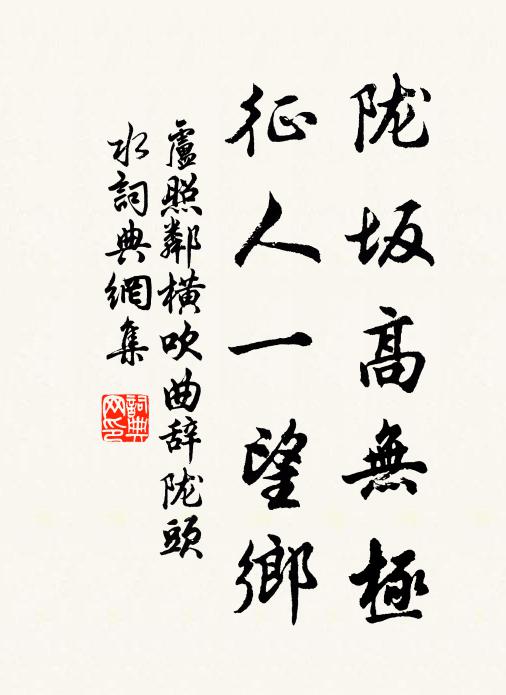 陇坂高無極
征人一望鄉
盧照鄰橫吹曲辞陇頭
水詞典網集
詞典
网印